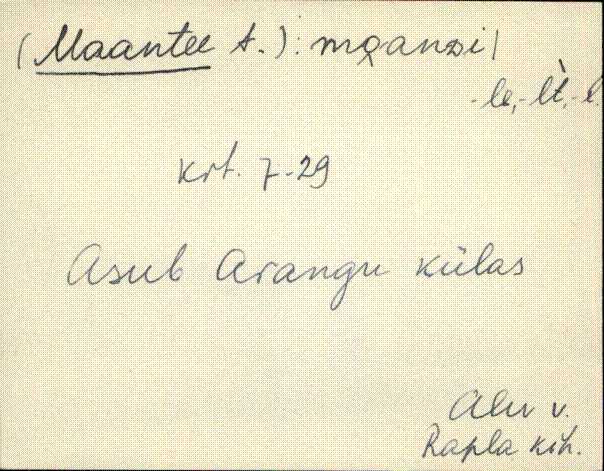 (Maantee t.): mo̭anzi|
-le, -lt̀, -l.
krt. 7-29
Asub Arangu külas
Alu v.
Rapla kih.